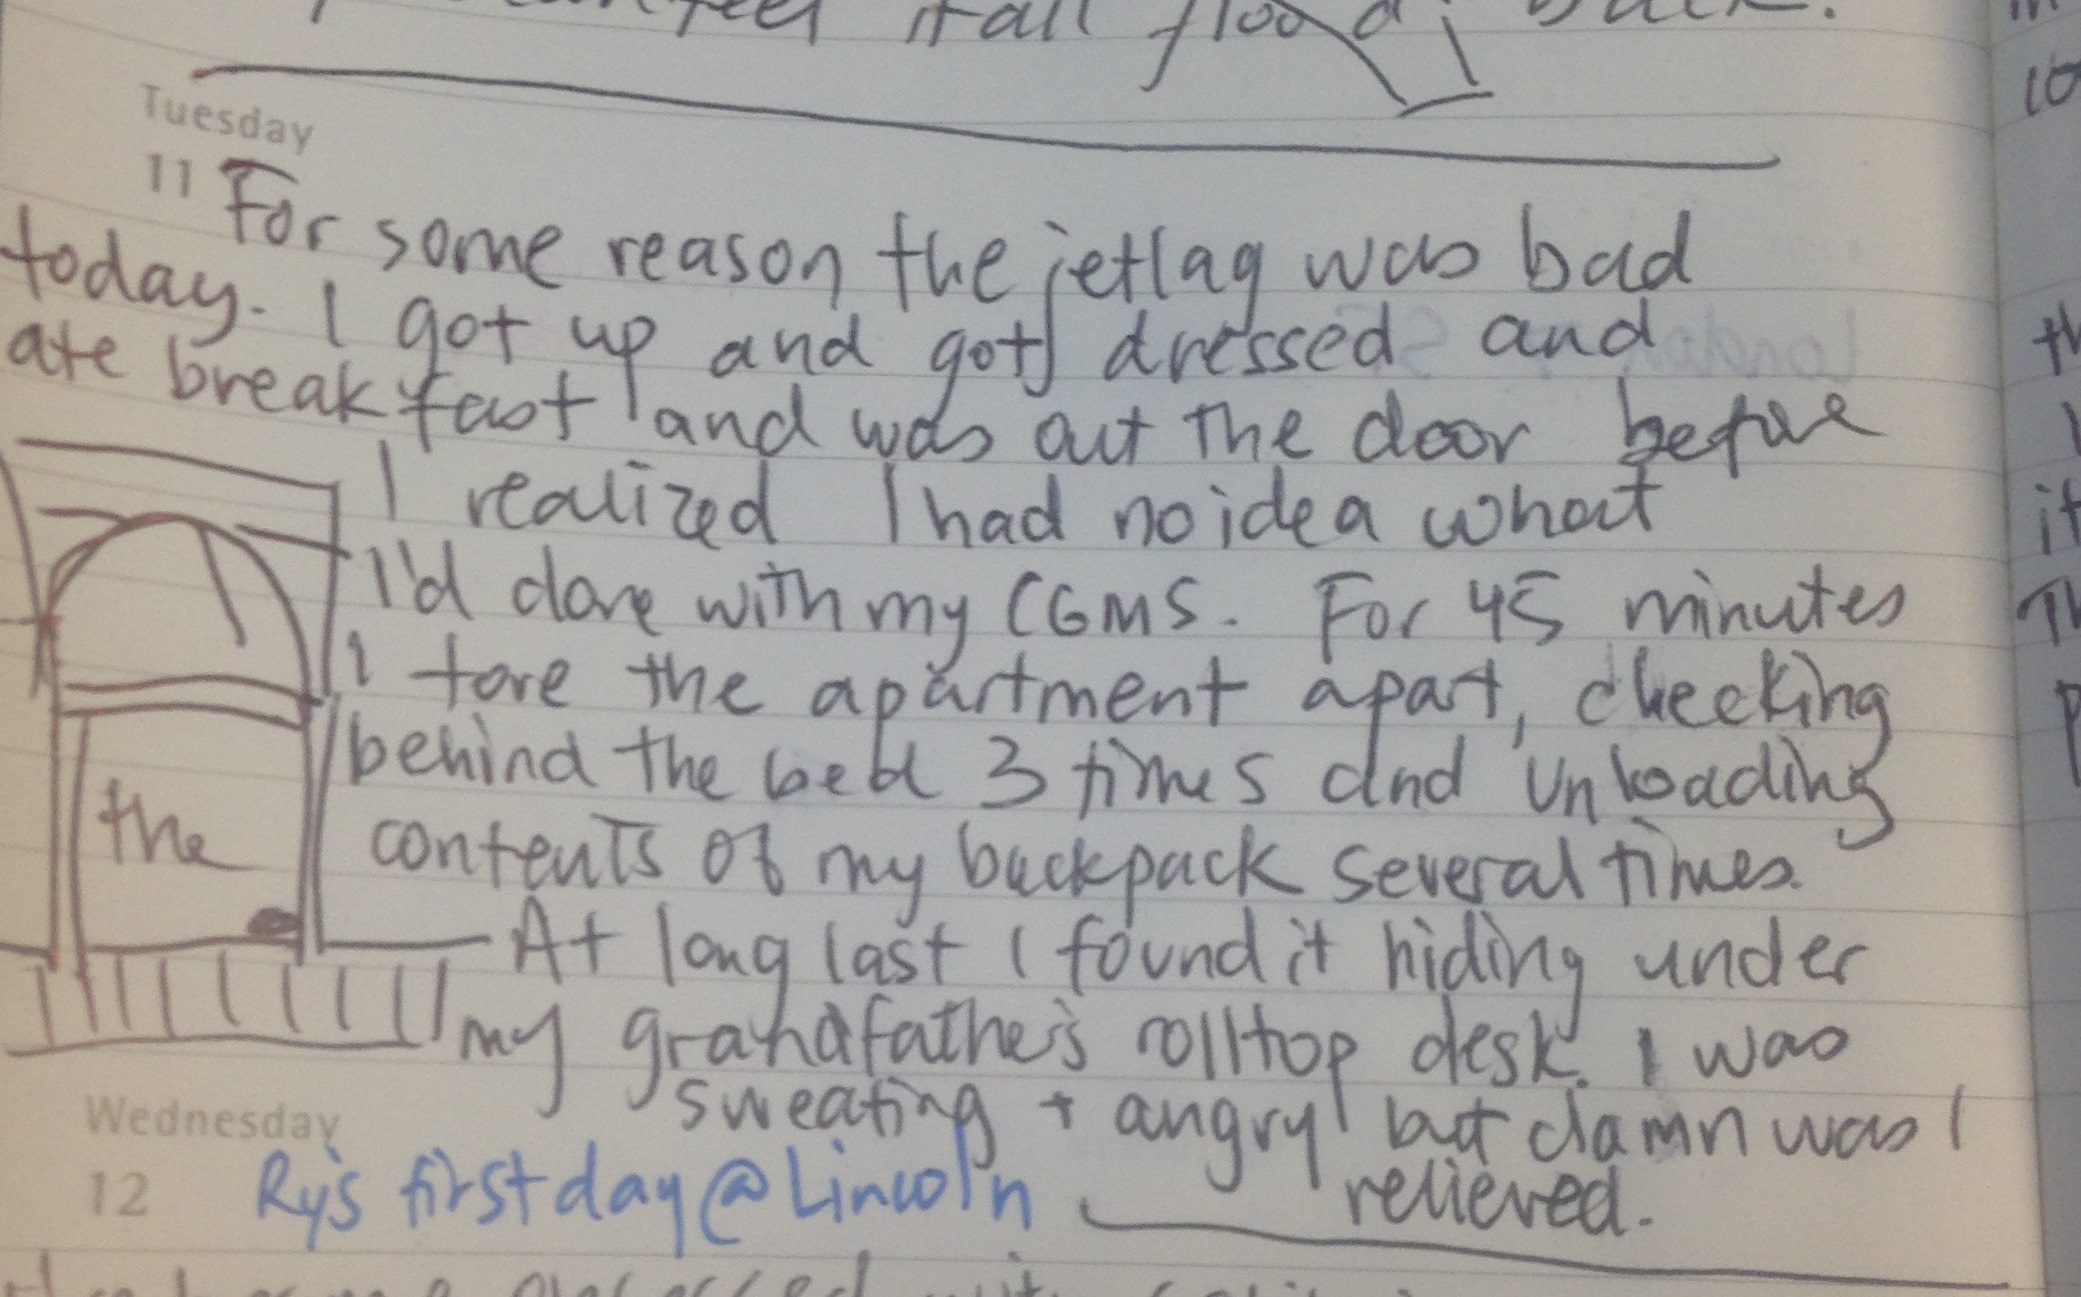 it all flood back.
Tuesday
11 For some reason the jetlag was bad
today. I got up and got dressed and
ate breakfast and was out the door before
I realized I had no idea what
I'd done with my CGMS. For 45 minutes
I tore the apartment apart, checking
behind the bed 3 times and unloading
the contents of my backpack several times.
At long last I found it hiding under
my grandfather's rolltop desk. I was
sweating + angry but damn was I
relieved.
Wednesday
12 Ry's first day @ Lincoln